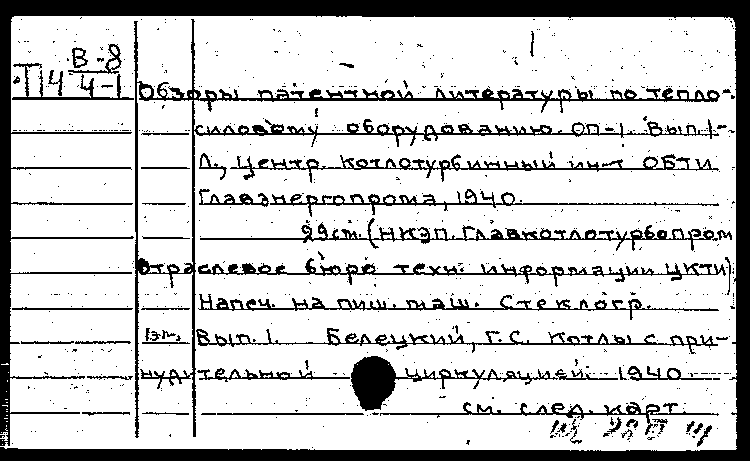 В-8
П4 4-1
Обзоры патентной литературы по тепло-
силовому оборудованию. ОП-1. Вып.1-
Л., Центр. Котлотурбинный ин-т ОБТИ
Главэнергопрома, 1940.
29см. (НКЭП. Главкотлотурбопром
Отраслевое бюро техн. информации ЦКТИ)
Напеч. на пиш. маш. Стеклогр.
1эк. Вып.1. Белецкий, Г.С. Котлы с при-
нудительной циркуляцией. 1940
см. след. карт.